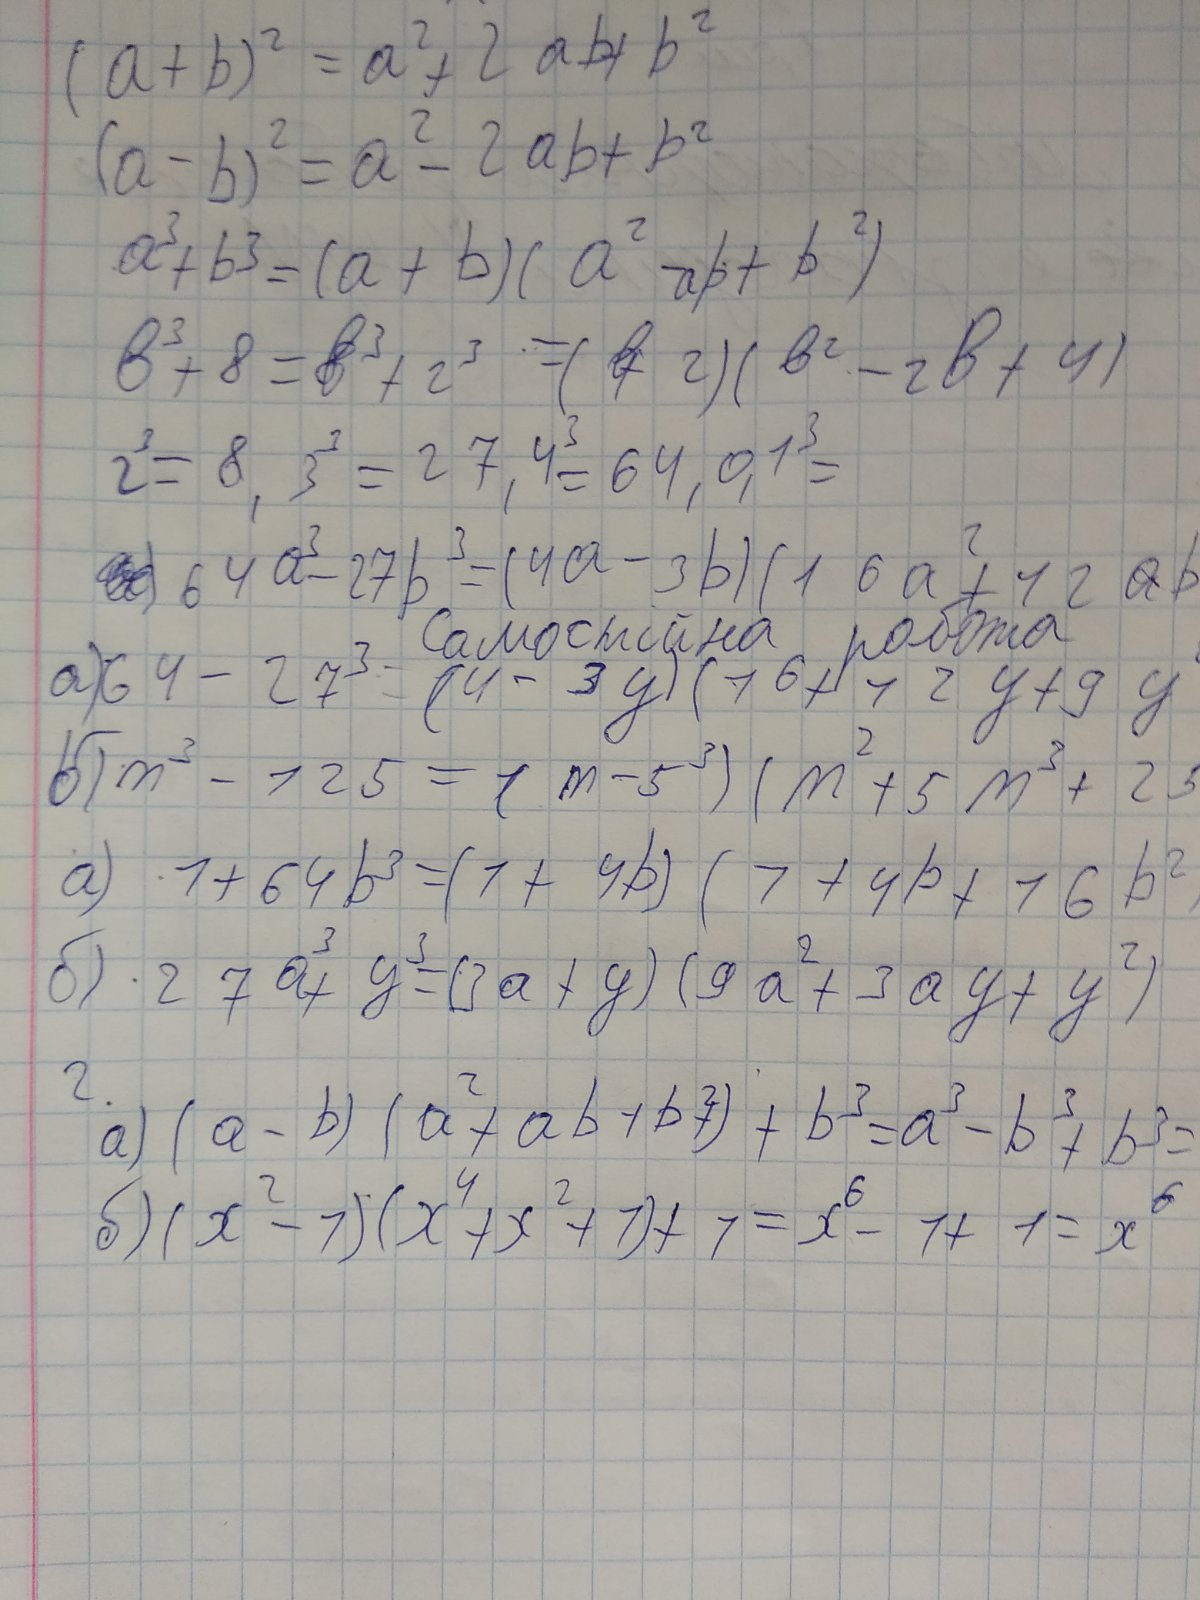 (a+b)² = a² + 2ab + b²
(a - b)² = a² - 2ab + b²
a³ + b³ = (a + b)(a² - ab + b²)
в³ + 8 = в³ + 2³ = (в + 2)(в² - 2в + 4)
2³ = 8, 3³ = 27, 4³ = 64, 0,1³ =
64a³ - 27b³ = (4a - 3b)(16a² + 12ab
Самостійна робота
а) 64 - 27³ = (4 - 3y)(16 + 12y + 9y
б) m³ - 125 = (m - 5³)(m² + 5m³ + 25
а) 1 + 64b³ = (1 + 4b)(1 + 4b + 16b²)
б) 27a³ + y³ = (3a + y)(9a² + 3ay + y²)
2.
а) (a - b)(a² + ab + b²) + b³ = a³ - b³ + b³ =
б) (x² - 1)(x⁴ + x² + 1) + 1 = x⁶ - 1 + 1 = x⁶